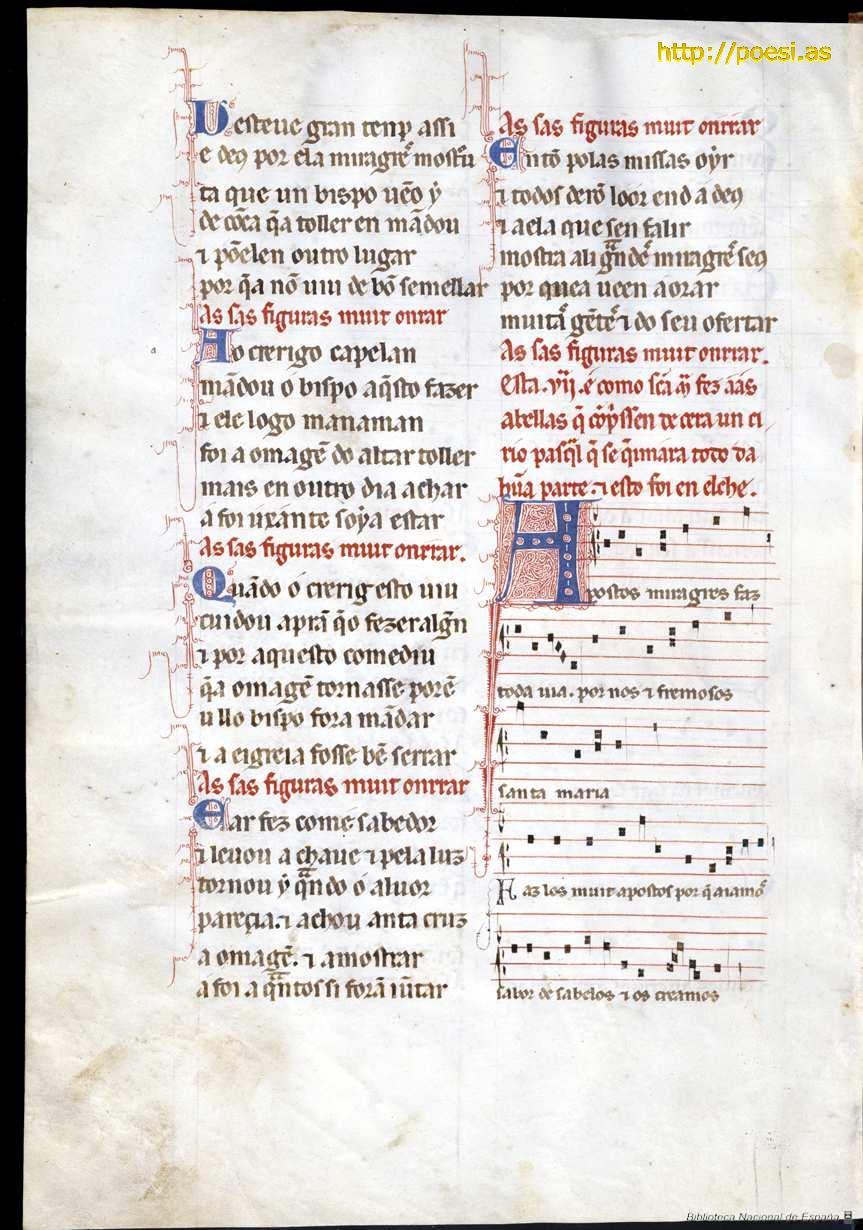 http://poesi.as
Desteue gran tenp assi
e deꝯ por ela miragreˢ mostͬu
ta que un bispo uẽo ỹ
de cõca q̃a toller en mãdou
⁊ põelen outro lugar
por q̃a nõ uiu de bõ semellar
As sas figuras muit onrar
Ao crerigo capelan
mãdou o bispo aq̃sto fazer
⁊ ele logo manaman
foi a omagẽ do altar toller
mais en outro dia achar
a foi ux ante soya estar
As sas figuras muit onrrar.
Quãdo o crerig esto uiu
cuidou
⁊ por aquesto comediu
q̃a omagẽ tornasse porẽ
u llo bispo fora mãdar
⁊ a eigreia fosse bẽ serrar
As sas figuras muit onrrar
E ar fez come sabedor
⁊ leuou a chaue ⁊ pela luz
tornou ỹ q̃ndo o aluor
pareçia. ⁊ achou anta cruz
a omagẽ. ⁊ a mostrar
a foi a q̃ntos si forã iũtar
As sas figuras muit onrrar
Entõ polas missas oyr
⁊ todos derõ loor end a deꝯ
⁊ a ela que sen falir
mostra ali g̃ndeˢ miragreˢ seꝯ
por que a ueen aorar
muitaˢ gẽteˢ ⁊ do seu ofertar
As sas figuras muit onrrar.
Esta .vij. é como sc̃a m̃ fez áás
abellas q̃ cõpssen de cera un ci
rio pasq̃l q̃ se q̃imara todo da
hũa parte. ⁊ esto foi en elche.
Apostos miragres faz
toda uia. por nos ⁊ fremosos
santa maria
Faz los muit apostos por q̃ aiamoˢ
sabor de sabelos ⁊ os creamos
Biblioteca Nacional de España